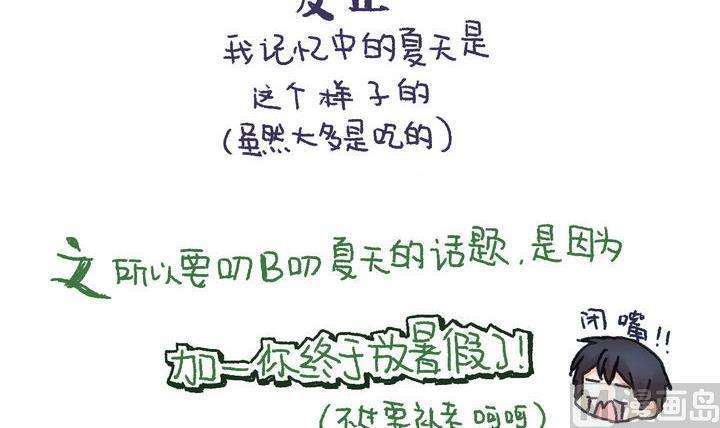 我记忆中的夏天是
这个样子的
(虽然大多是吃的)
之所以要叨B叨夏天的话题，是因为
闭嘴!!
加一你终于放暑假了!
(不过要补考呵呵)
漫画岛